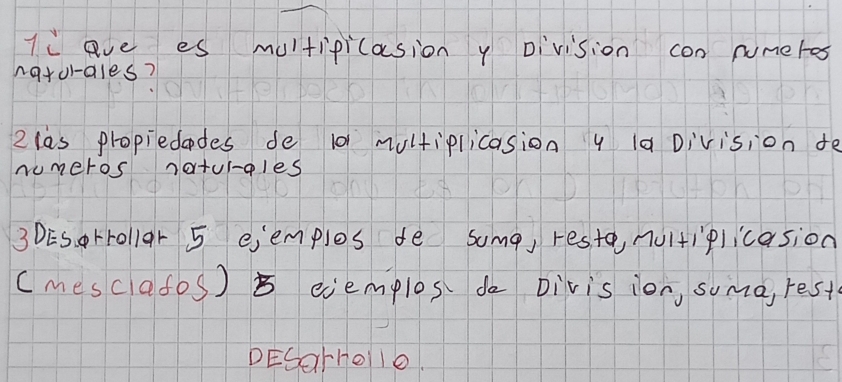 1¿ que es multipicasion y Division con numeros
naturales?
2 las propiedades de la multiplicasion y la Division de
numeros naturales
3 DESarrollar 5 ejemplos de suma, resta, multiplicasion
(mesclados) 5 ejemplos de Division, suma, resta
DESarrollo.